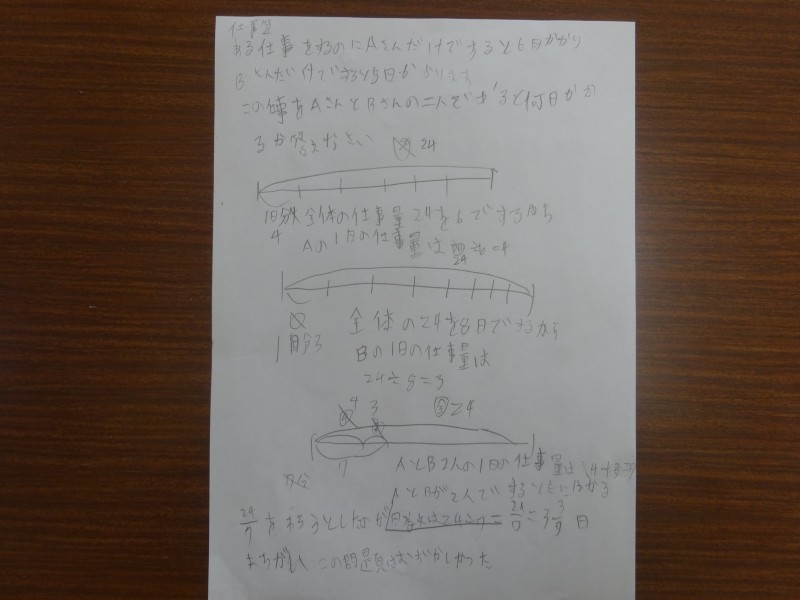 仕事量
ある仕事をするのにAさんだけですると6日かかり
Bさんだけですると8日かかります
この仕事をAさんとBさんの二人ですると何日かか
るか答えなさい 24
1日分 全体の仕事量24を6でするから
4 Aの1日の仕事量は 24÷6=4
全体の24を8日でするから
1日分3 Bの1日の仕事量は
24÷8=3
4 3 24
7 AとBさんの1日の仕事量は 4+3=7
AとBが2人で するのに
24/7 日 24÷7=24/7=3 3/7 日
まちがい この問題はむずかしかった